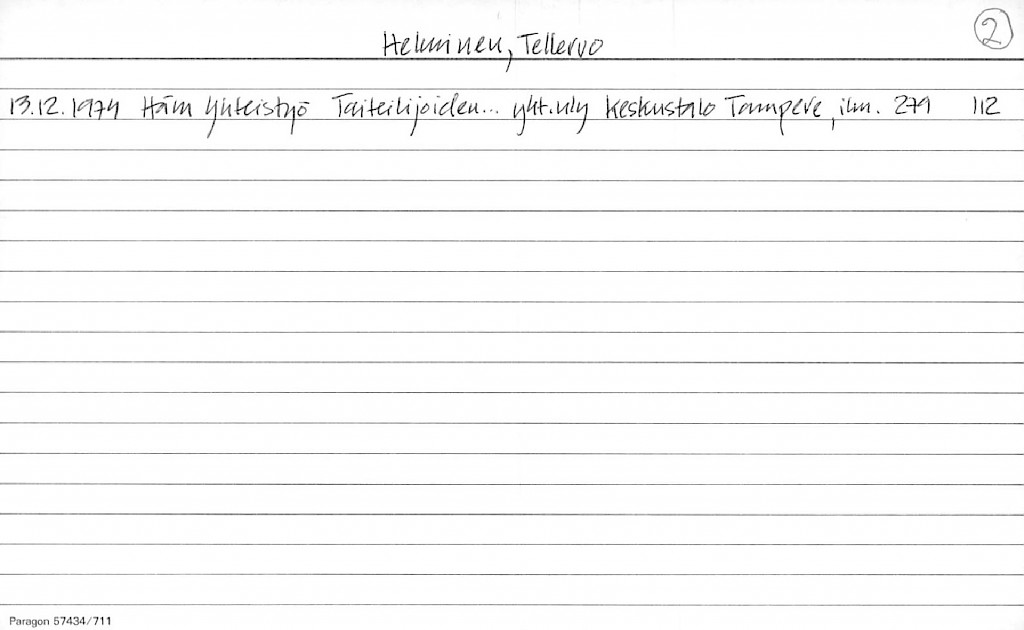 Helminen, Tellervo
2
13.12.1974 Häm Yhteistyö Taiteilijoiden... yht.nly Keskustalo Tampere, ilm. 279 112
Paragon 57434/711